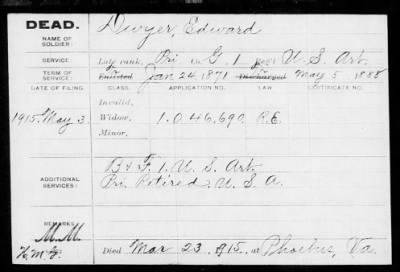 DEAD. Dwyer, Edward
NAME OF SOLDIER:
SERVICE: Late rank, Pri Co. G, 1 Regt U. S. Art.
TERM OF SERVICE: Enlisted Jan 24, 1871 Discharged May 5, 1888
DATE OF FILING. CLASS. APPLICATION NO. LAW CERTIFICATE NO.
Invalid,
1915. May 3. Widow, 1.046.690 R.E.
Minor,
B & F. 1. U. S. Art.
ADDITIONAL SERVICES: Pri. Retired. U. S. A.
REMARKS:
M. M.
Died Mar 23, 1915, at Phoebus, Va.